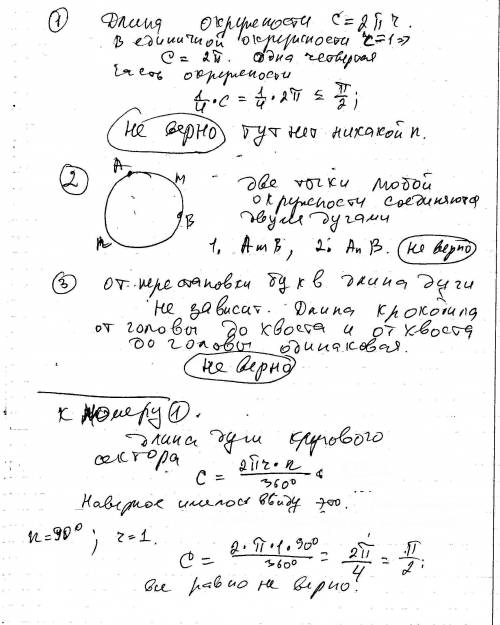 ① Длина окружности C = 2πr.
В единичной окружности r=1 ⇒
C = 2π. Одна четвертая
часть окружности
1/4 · C = 1/4 · 2π = π/2;
Не верно Тут нет никакой п.
② A M B n две точки любой
окружности соединяются
двумя дугами
1. AmB, 2. AnB. не верно
③ от перестановки букв длина дуги
не зависит. Длина крокодила
от головы до хвоста и от хвоста
до головы одинаковая.
не верно
К номеру ①.
длина дуги кругового
сектора
C = 2πr·n/360°
Наверное имелось ввиду это.
n=90°; r=1.
C = 2·π·1·90°/360° = 2π/4 = π/2;
все равно не верно.